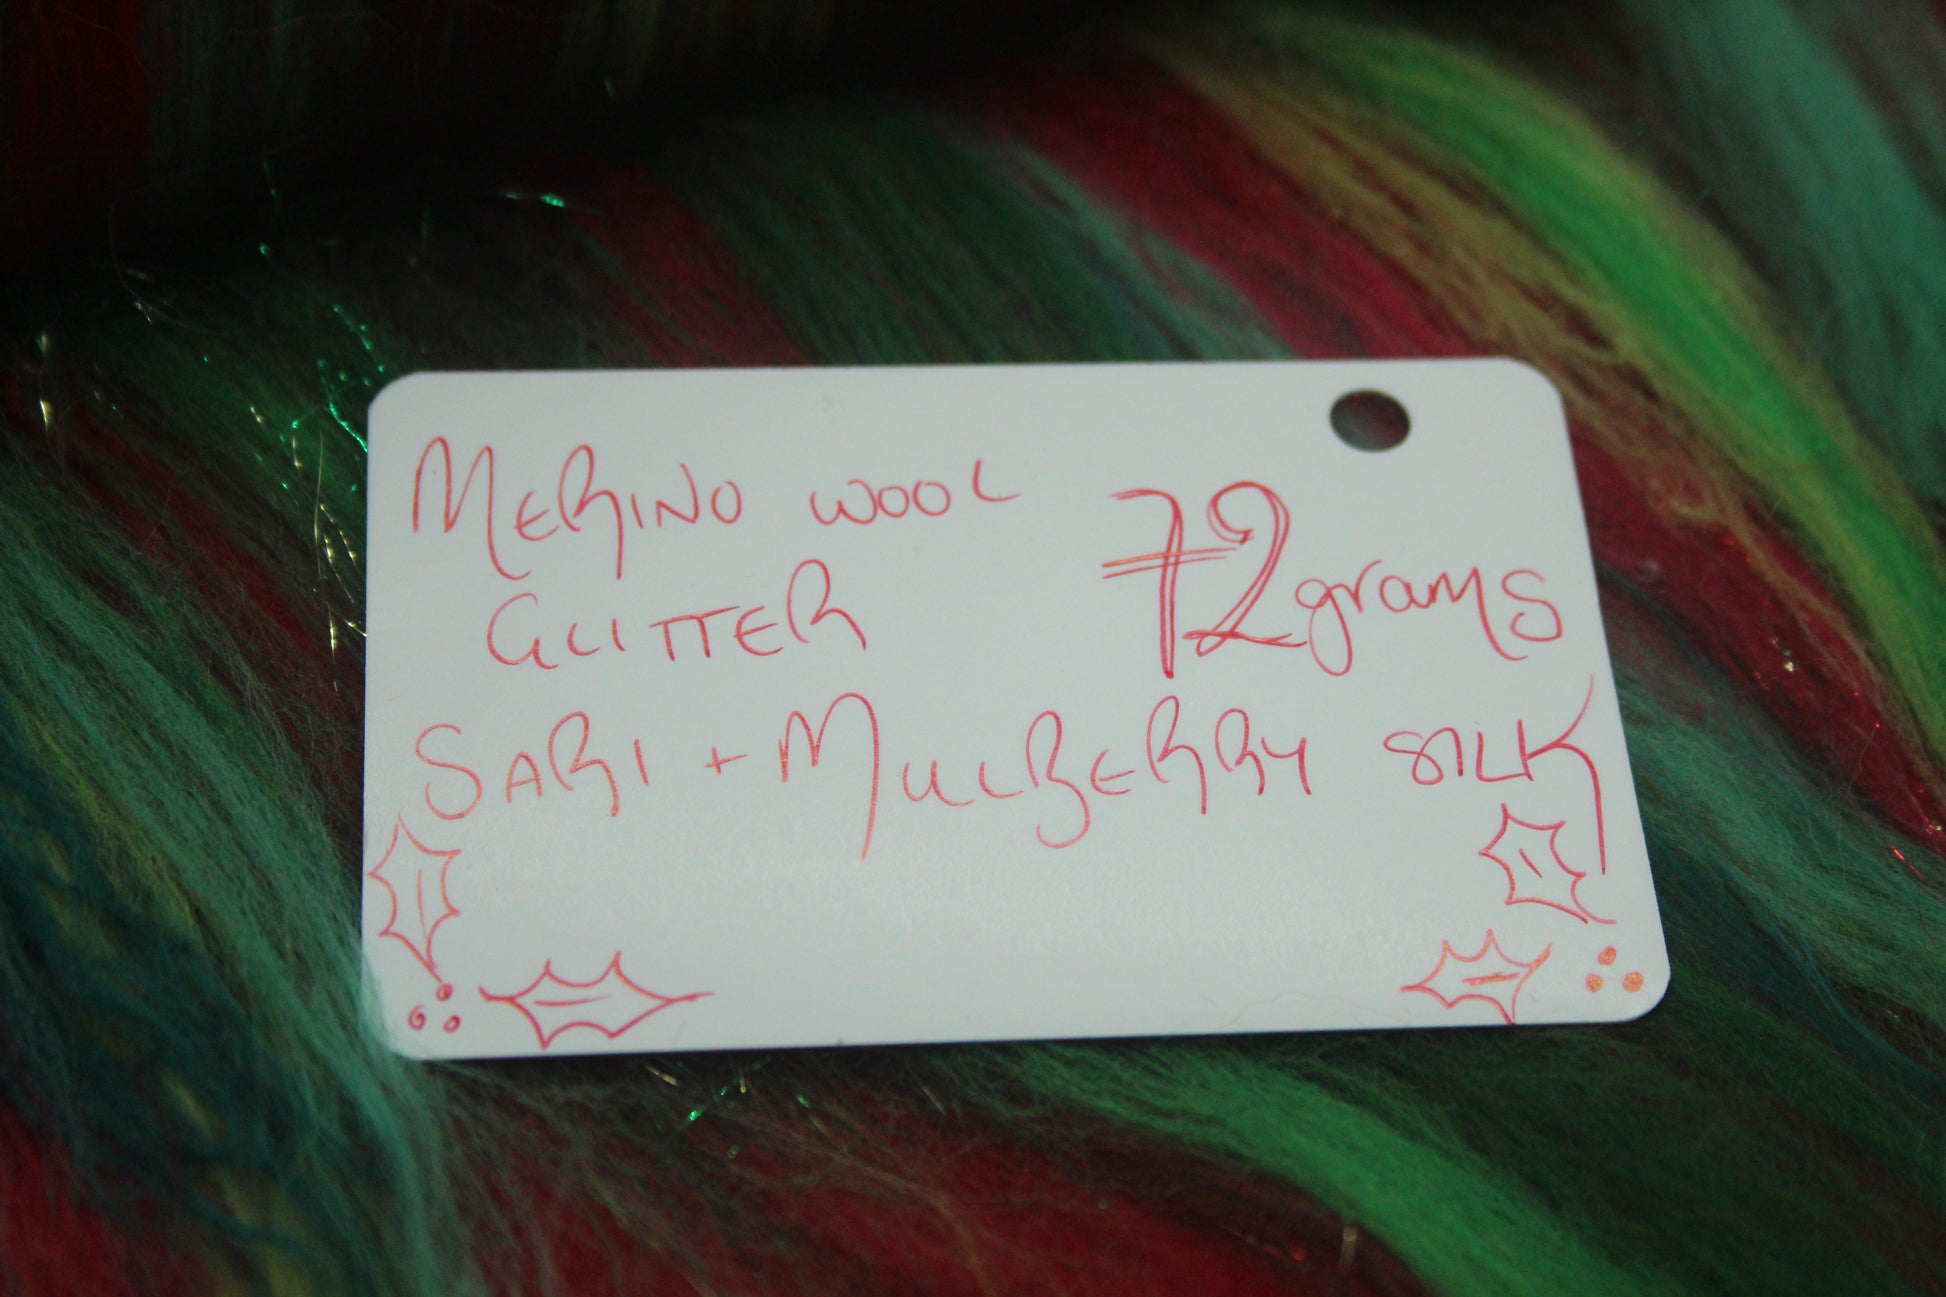 MERINO WOOL
72grams
GLITTER
SARI + MULBERRY SILK